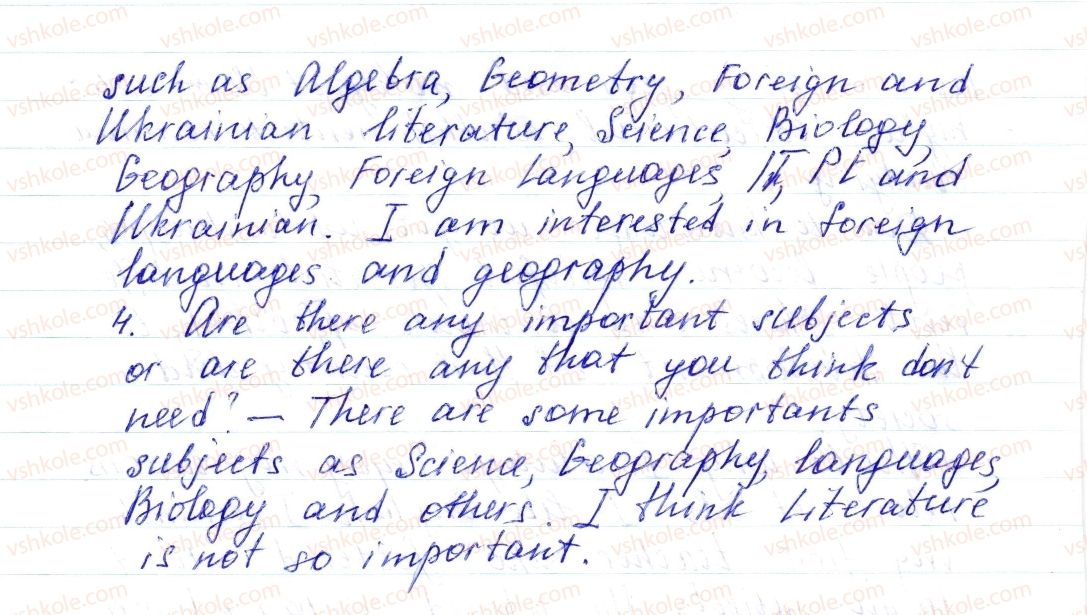 such as Algebra, Geometry, Foreign and
Ukrainian literature, Science, Biology,
Geography, Foreign Languages, IT, PE and
Ukrainian. I am interested in foreign
languages and geography.
4. Are there any important subjects
or are there any that you think don't
need? — There are some importants
subjects as Science, Geography, languages,
Biology and others. I think Literature
is not so important.